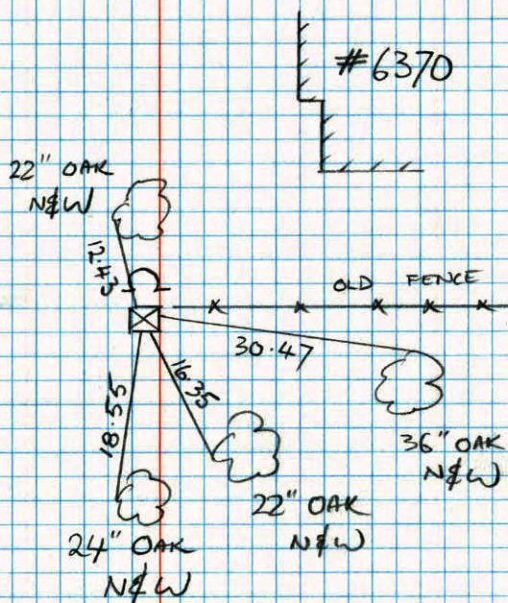 #6370
22" OAK
N&W
12.43
OLD FENCE
30.47
16.35
18.55
36" OAK
N&W
22" OAK
N&W
24" OAK
N&W